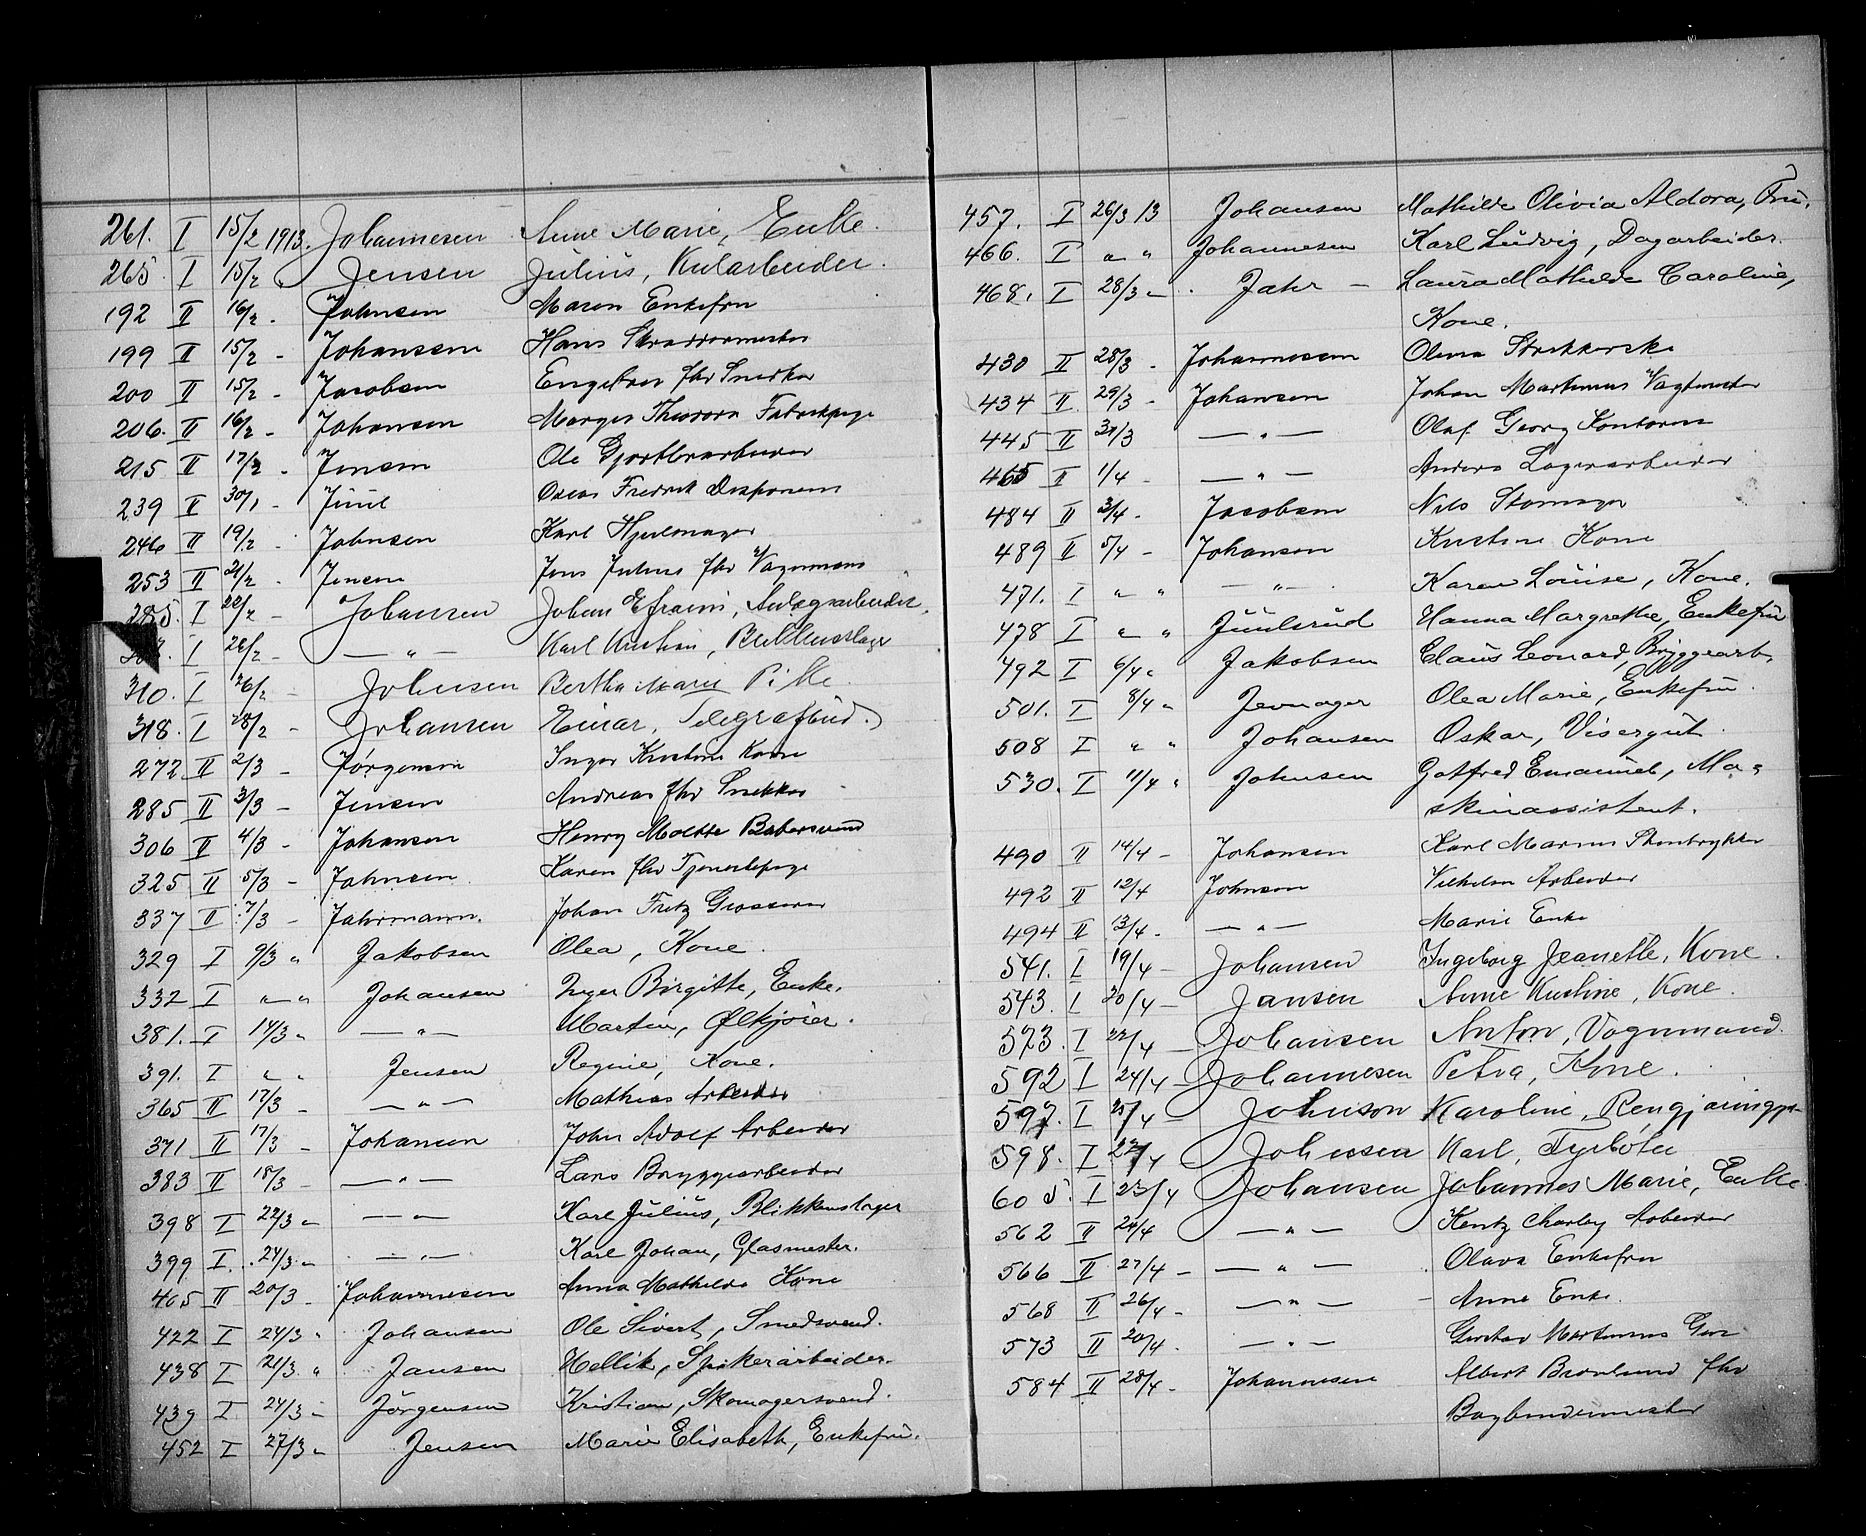 261. I 15/2 1913. Johannesen Anne Marie, Enke.
265. I 15/2 " Jensen Julius, Kularbeider.
192 II 16/2 - Johnsen Maren Enkefru
199 II 15/2 - Johansen Hans Skræddermester
200 II 15/2 - Jacobsen fhv Snedker
206. II 16/2 - Johansen Theodora Fabrikpige
215 II 17/2 - Jensen Ole
239 II 30/1 - Juul Oscar Fredrik Disponent
246 II 19/2 - Johnsen Karl Hjulmager
253 II 21/2 - Jensen Jens Julius fhv Vognmand
285. I 22/2 - Johansen Johan Efraim, Anlægsarbeider.
I 26/2 - — " — Karl Kristian, Blikkenslager
310. I 26/2 - Johnsen Bertha Marie Pike.
318. I 28/2 - Johansen Einar, Telegrafbud.
272 II 2/3 - Jørgensen Inger Kristine Kone
285 II 3/3 - Jensen Andreas fhv Snekker
306 II 4/3 - Johansen Henry Moltke
325 II 5/3 - Johnsen Karen fhv Tjenestepige
337 II 7/3 - Jahrmann. Johan Fritz Grosserer
329 I 9/3 " Jakobsen Olea, Kone.
332 I " " Johansen Inger Birgitte, Enke.
381. I 14/3 " — " — Martin, Ølkjører.
391. I " " Jensen Regine, Kone.
365 II 17/3 - — " — Mathias Arbeider
371 II 17/3 - Johansen John Adolf Arbeider
383 II 18/3 - — " — Lars Bryggearbeider
398 I 22/3 " — " — Karl Julius, Blikkenslager
399 I. 24/3 " — " — Karl Johan, Glasmester.
405 II 20/3 - Johannesen Anna Mathilde Kone
422 I 24/3 " Johansen Ole Sivert, Smedsvend.
438 I 21/3 " Jansen Hellik, Spikerarbeider.
439 I 24/3 " Jørgensen Kristian, Skomagersvend.
452 I 27/3 " Jensen Marie Elisabeth, Enkefru.
457. I 26/3 13 Johansen Mathilde Olivia Aldora, Fru.
466. I " " Johannesen Karl Ludvig, Dagarbeider.
468. I 28/3 " Jahr - Laura Mathilde Caroline,
Kone.
430 II 28/3 - Johannesen Olena
434 II 29/3 - Johansen Johan Martinius Vagtmester
445 II 31/3 — " — Olaf Georg Kontorist
465 II 1/4 - — " — Anders Lagerarbeider
484 II 3/4 - Jacobsen Nils Skomager
489 II 5/4 - Johansen Kristine Kone
471. I " " — " — Karen Louise, Kone.
478 I " " Juulsrud Hanna Margrethe, Enkefru
492 I 6/4 " Jakobsen Claus Leonard, Bryggearb.
501. I 8/4 " Jevnager Olea Marie, Enkefru.
508 I " " Johansen Oskar, Visergut.
530. I 11/4 " Johnsen Gotfred Emanuel, Ma-
skinassistent.
490 II 14/4 - Johansen Karl Marius Stenbrykker
492 II 12/4 Johnson Vilhelm Arbeider
494 II 13/4 - — " — Marie Enke
541. I 19/4 - Johansen Ingeborg Jeanette, Kone.
543. I 20/4 - Jansen Anne Kristine, Kone.
573. I 22/4 - Johansen Anton, Vognmand.
592 I 24/4 - Johannesen Petra, Kone.
597. I 25/4 - Johnson Karoline,
598. I 22/4 Johnsen Karl, Fyrbøter
605. I 23/4 Johansen Johannes Marie, Enke.
562 II 24/4 — " — Charley Arbeider
566 II 27/4 - — " — Olava Enkefru
568 II 26/4 - — " — Anne Enke.
573 II 20/4 - — " — Gustav Martinius
584 II 28/4 - Johannesen Albert fhv
Bogbindermester